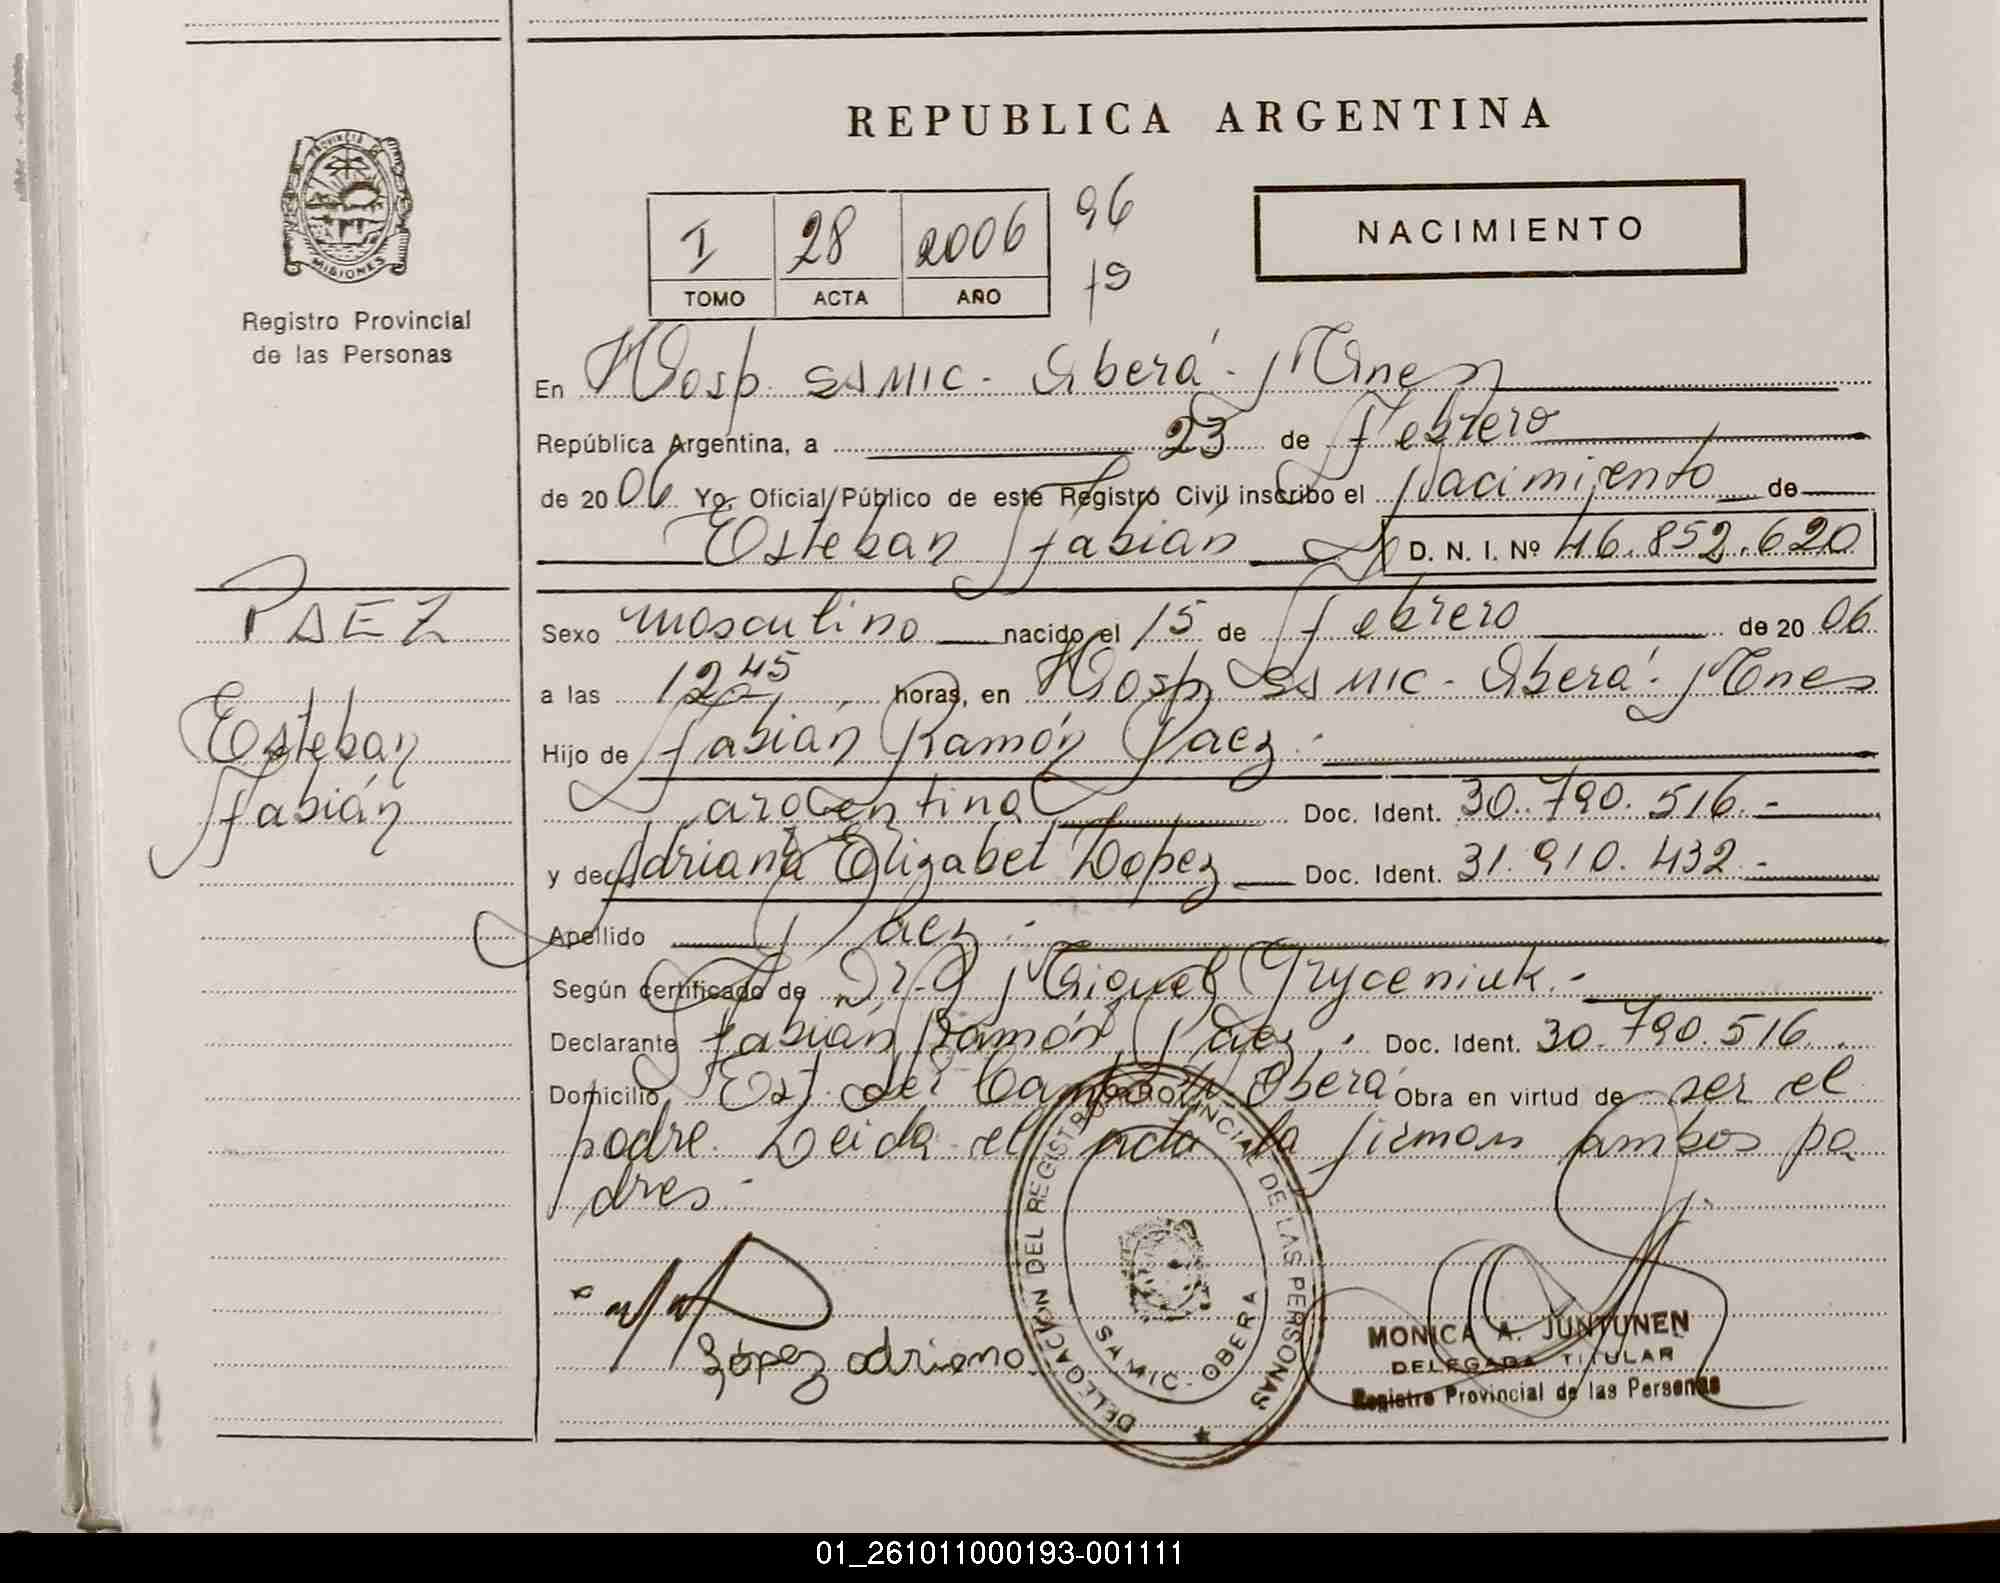 REPUBLICA ARGENTINA
PROVINCIA DE MISIONES
Registro Provincial
de las Personas
I 28 2006 96
TOMO ACTA AÑO
NACIMIENTO
En Hosp. SAMIC - Oberá - Mnes
República Argentina, a 23 de Febrero
de 2006 Yo, Oficial Público de este Registro Civil inscribo el Nacimiento de
Esteban Fabián D. N. I. Nº 46.852.620
PAEZ
Esteban
Fabián
Sexo masculino nacido el 15 de Febrero de 2006
a las 12 45 horas, en Hosp SAMIC - Oberá - Mnes
Hijo de Fabián Ramón Paez.-
argentino Doc. Ident. 30.790.516.-
y de Adriana Elizabet Lopez Doc. Ident. 31.910.432.-
Apellido Paez.-
Según certificado de Dr. Miguel Gryceniuk.-
Declarante Fabián Ramón Paez. Doc. Ident. 30.790.516.
Domicilio Est. del Campo Oberá Obra en virtud de ser el
padre. Leida el acta la firman ambos pa
dres.-
López adriana
DELEGACION DEL REGISTRO PROVINCIAL DE LAS PERSONAS
SAMIC - OBERA
MONICA A. JUNTUNEN
DELEGADA TITULAR
Registro Provincial de las Personas
01_261011000193-001111